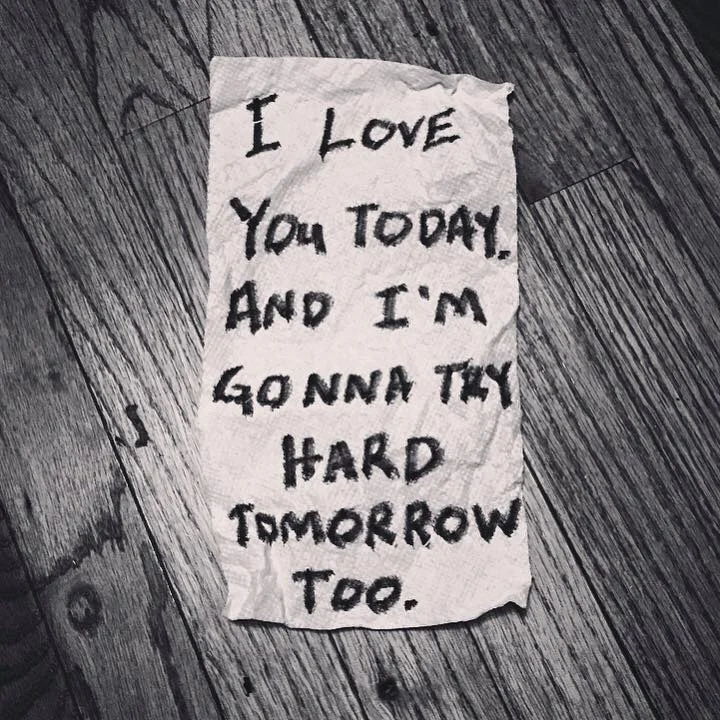 I LOVE
YOu TODAY.
AND I'M
GONNA TRY
HARD
TOMORROW
TOO.